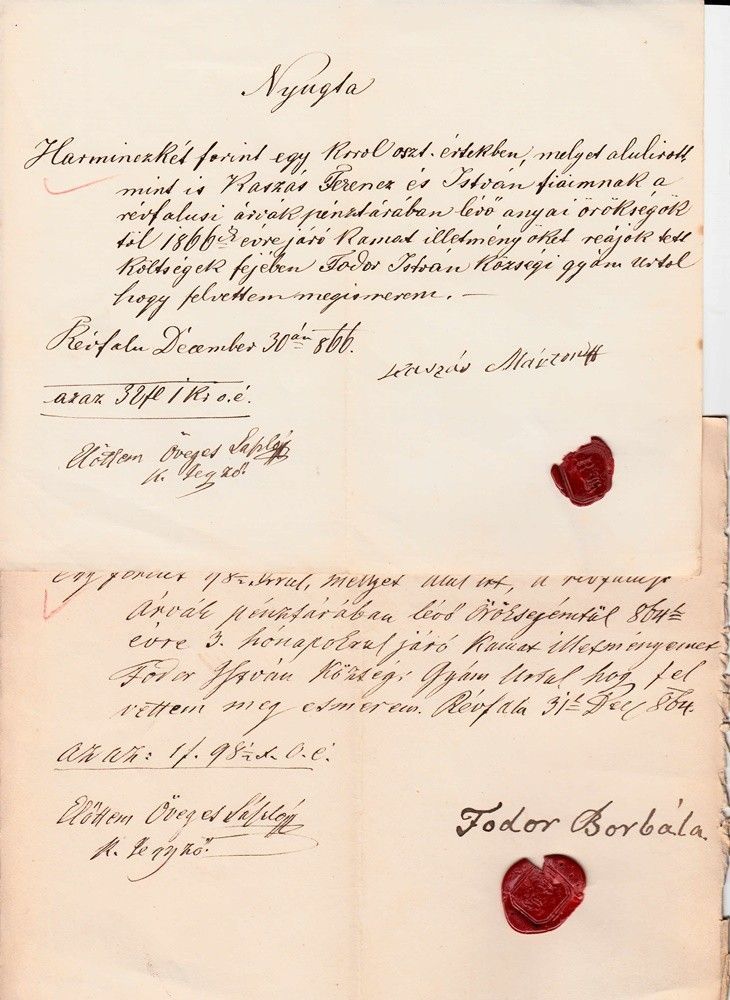 Nyugta
Harminczkét forint egy krrol oszt. értékben, melyet alulirott,
mint is Kaszás Ferencz és István fiaimnak a
révfalusi árvák pénztárában lévő anyai örökségök
től 1866ik évre járó kamat illetményöket reájok tett
költségek fejében Fodor István községi gyám Urtol
hogy felvettem megismerem. —
Révfalu December 30án 866.
Kaszás Márton
azaz 32 fl 1 Kr o.é.
Előttem Öveges
K. Jegyző.
egy forint
Árvák pénztárában lévő Örökségemtül 864k
évre 3. hónapokrul járó Kamat illetményemet
Fodor István Községi Gyám Urtal hogy fel
vettem meg esmerem. Révfalu 31k Dec 864.
azaz: 1 f. 98½ x. O. é.
Előttem Öveges
K. Jegyző.
Fodor Borbála.